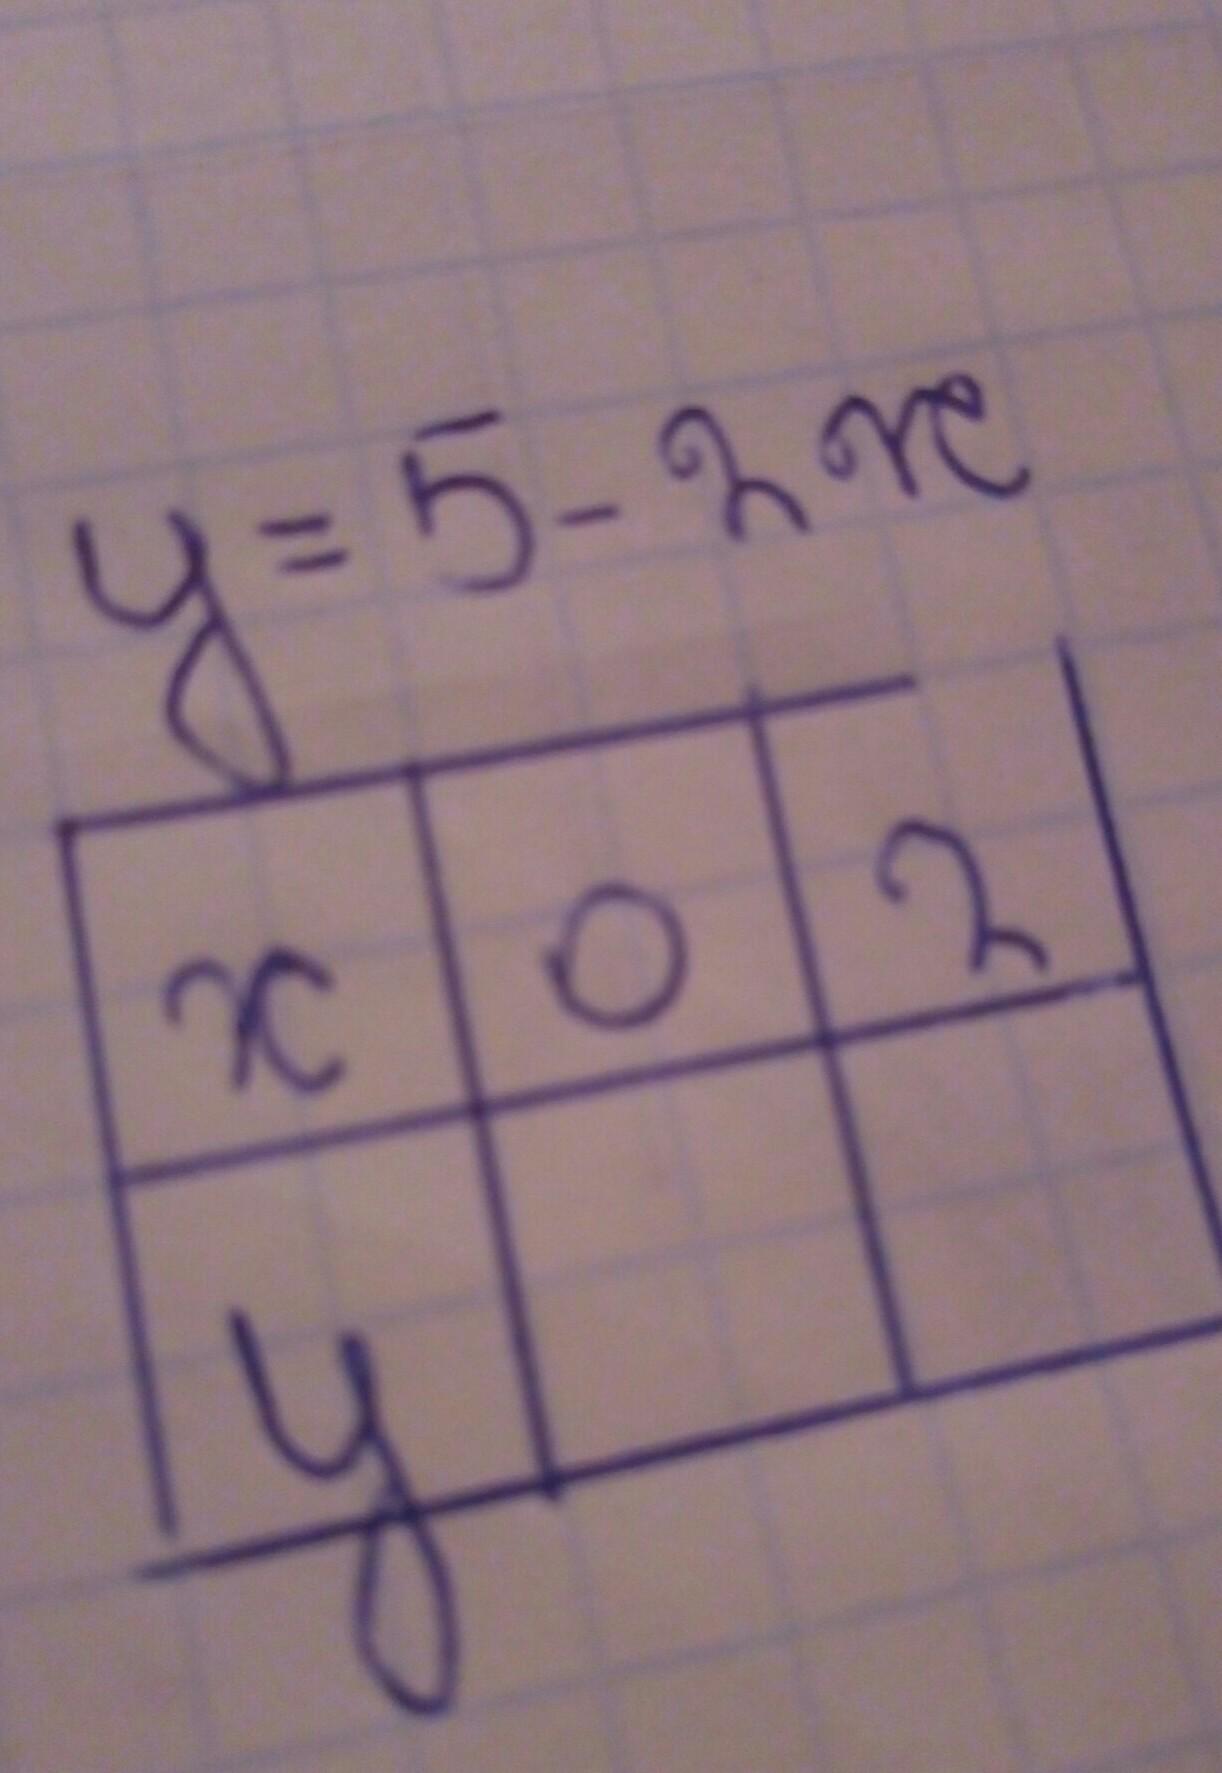 y = 5 - 2x
x 0 2
y